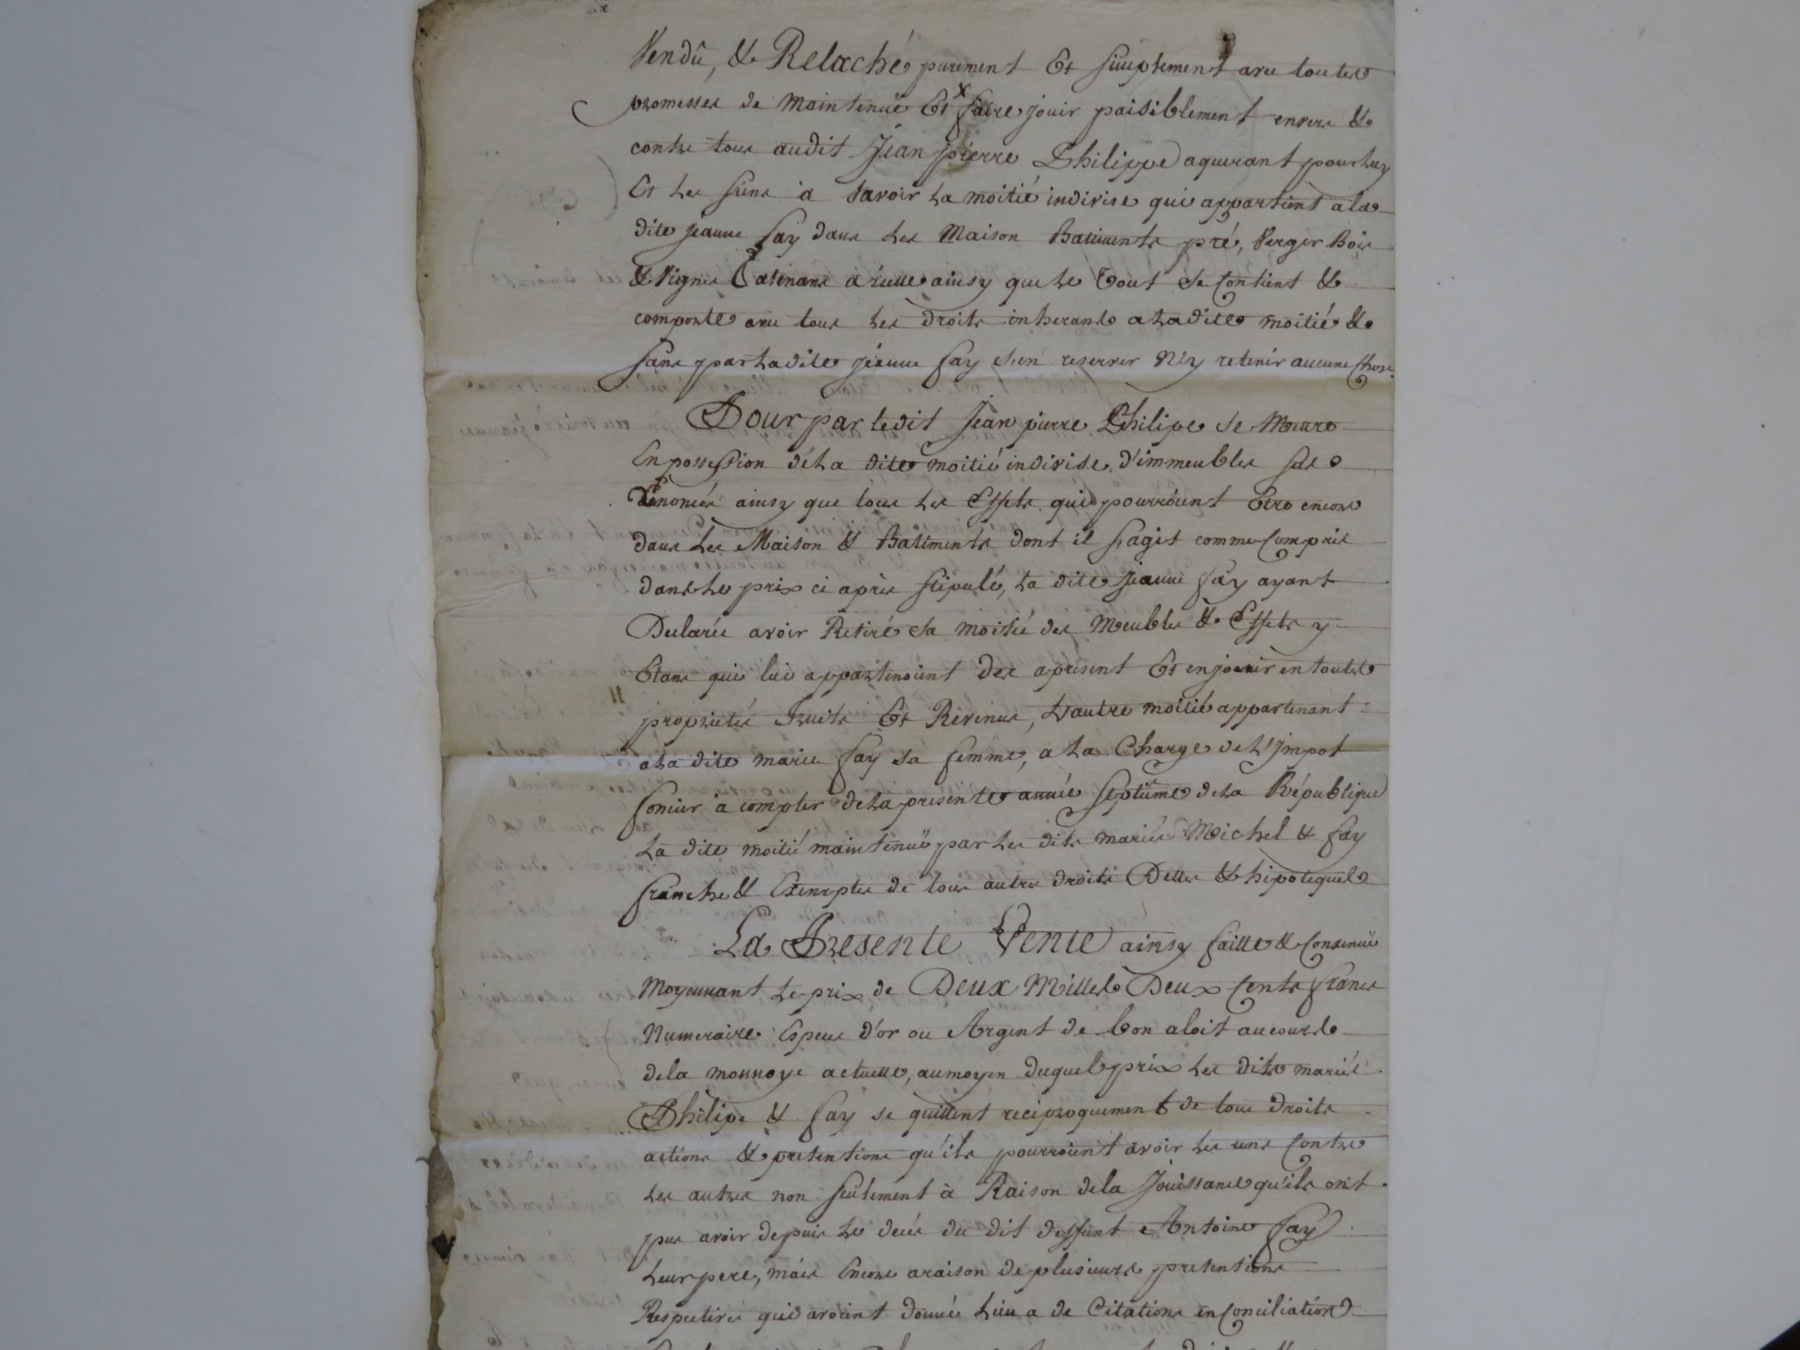 Vendû, & Relaché purement Et simplement avec toutes
promesses de Maintenuë Et faire jouir paisiblement envers &
contre tous audit Jean pierre Philippe aquerant pour luy
Et Les siens à savoir La moitié indivise qui appartient a la
dite jeanne fay dans Les Maison Batiments pré, Verger Bois
& Vignes atenans à icelle ainsy que Le Tout se Contient &
comporte avec tous Les droits inherans a La dite moitié &
sans par La dite jeanne fay s'en reserver N'y retenir aucune Chose.
Pour par ledit Jean pierre Philipe se Mettre
En possession dé La dite moitié indivise d'immeubles sus
Enoncés ainsy que tous Les Effets qui pourroient être encore
dans Les Maison & Batiments dont il s'agit comme Compris
dans Le prix ci après stipulé, La dite jeanne fay ayant
Declarée avoir Retiré sa moitié des Meubles & Effets y
Etans qui lui appartenoient des apresent Et en jouir en toutes
proprietés fruits Et Revenus, L'autre moitié appartenant
a La dite marie fay sa femme, a La Charge de L'Impot
foncier à compter de La presente année septieme de La République
La dite moitié maintenuë par Les dits mariés Michel & fay
franche & Exempte de tous autres droits Dettes & hipoteques
La Presente Vente ainsy faitte & Consenuë
Moyennant Le prix de Deux Milles Deux Cents francs
Numeraire Especes d'or ou Argent de bon aloit au cours
de la monnoye actuelle, au moyen duquel prix Les dits mariés
Philipe & fay se quittent reciproquement de tous droits
actions & pretentions qu'ils pourroient avoir Les uns Contre
Les autres non seulement à Raison de la Jouissance qu'ils ont
pus avoir depuis Le decés du dit deffunt Antoine fay
Leur pere, mais Encore a raison de plusieurs pretentions
Respectives qui avoient donnée Lieu a de Citations en Conciliation